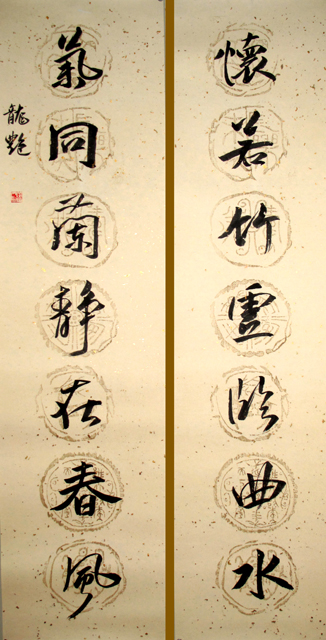 懷若竹虛臨曲水
氣同蘭靜在春風
龍艷